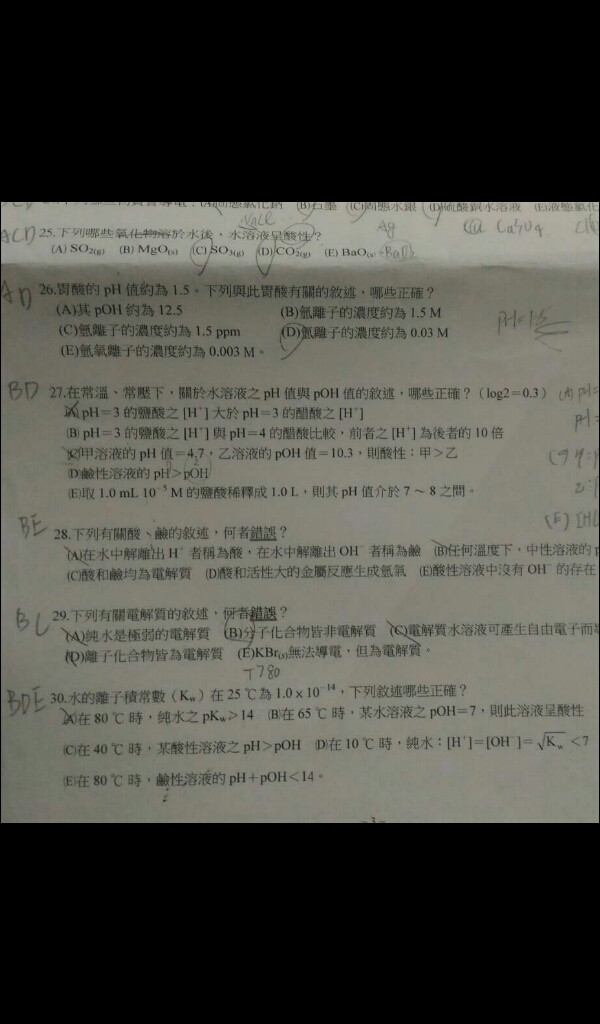 (B)石墨 (C)固態水銀 (D)硫酸銅水溶液
NaCl Ag
ACD 25.下列哪些氧化物溶於水後，水溶液呈酸性？
(A) SO₂(g) (B) MgO(s) (C) SO₃(g) (D) CO₂(g) (E) BaO(s)
AD 26.胃酸的 pH 值約為 1.5。下列與此胃酸有關的敘述，哪些正確？
(A)其 pOH 約為 12.5 (B)氫離子的濃度約為 1.5 M
(C)氫離子的濃度約為 1.5 ppm (D)氫離子的濃度約為 0.03 M
(E)氫氧離子的濃度約為 0.003 M。
BD 27.在常溫、常壓下，關於水溶液之 pH 值與 pOH 值的敘述，哪些正確？（log2=0.3）
(A) pH=3 的鹽酸之 [H⁺] 大於 pH=3 的醋酸之 [H⁺]
(B) pH=3 的鹽酸之 [H⁺] 與 pH=4 的醋酸比較，前者之 [H⁺] 為後者的 10 倍
(C)甲溶液的 pH 值=4.7，乙溶液的 pOH 值=10.3，則酸性：甲>乙
(D)鹼性溶液的 pH>pOH
(E)取 1.0 mL 10⁻⁵ M 的鹽酸稀釋成 1.0 L，則其 pH 值介於 7～8 之間。
BE 28.下列有關酸、鹼的敘述，何者錯誤？
(A)在水中解離出 H⁺ 者稱為酸，在水中解離出 OH⁻ 者稱為鹼 (B)任何溫度下，中性溶液的
(C)酸和鹼均為電解質 (D)酸和活性大的金屬反應生成氫氣 (E)酸性溶液中沒有 OH⁻ 的存在
BC 29.下列有關電解質的敘述，何者錯誤？
(A)純水是極弱的電解質 (B)分子化合物皆非電解質 (C)電解質水溶液可產生自由電子而
(D)離子化合物皆為電解質 (E)KBr(s)無法導電，但為電解質。
BDE 30.水的離子積常數（Kw）在 25 ℃為 1.0×10⁻¹⁴，下列敘述哪些正確？
(A)在 80 ℃時，純水之 pKw>14 (B)在 65 ℃ 時，某水溶液之 pOH=7，則此溶液呈酸性
(C)在 40 ℃時，某酸性溶液之 pH>pOH (D)在 10 ℃時，純水：[H⁺]=[OH⁻]=√Kw <7
(E)在 80 ℃時，鹼性溶液的 pH+pOH<14。